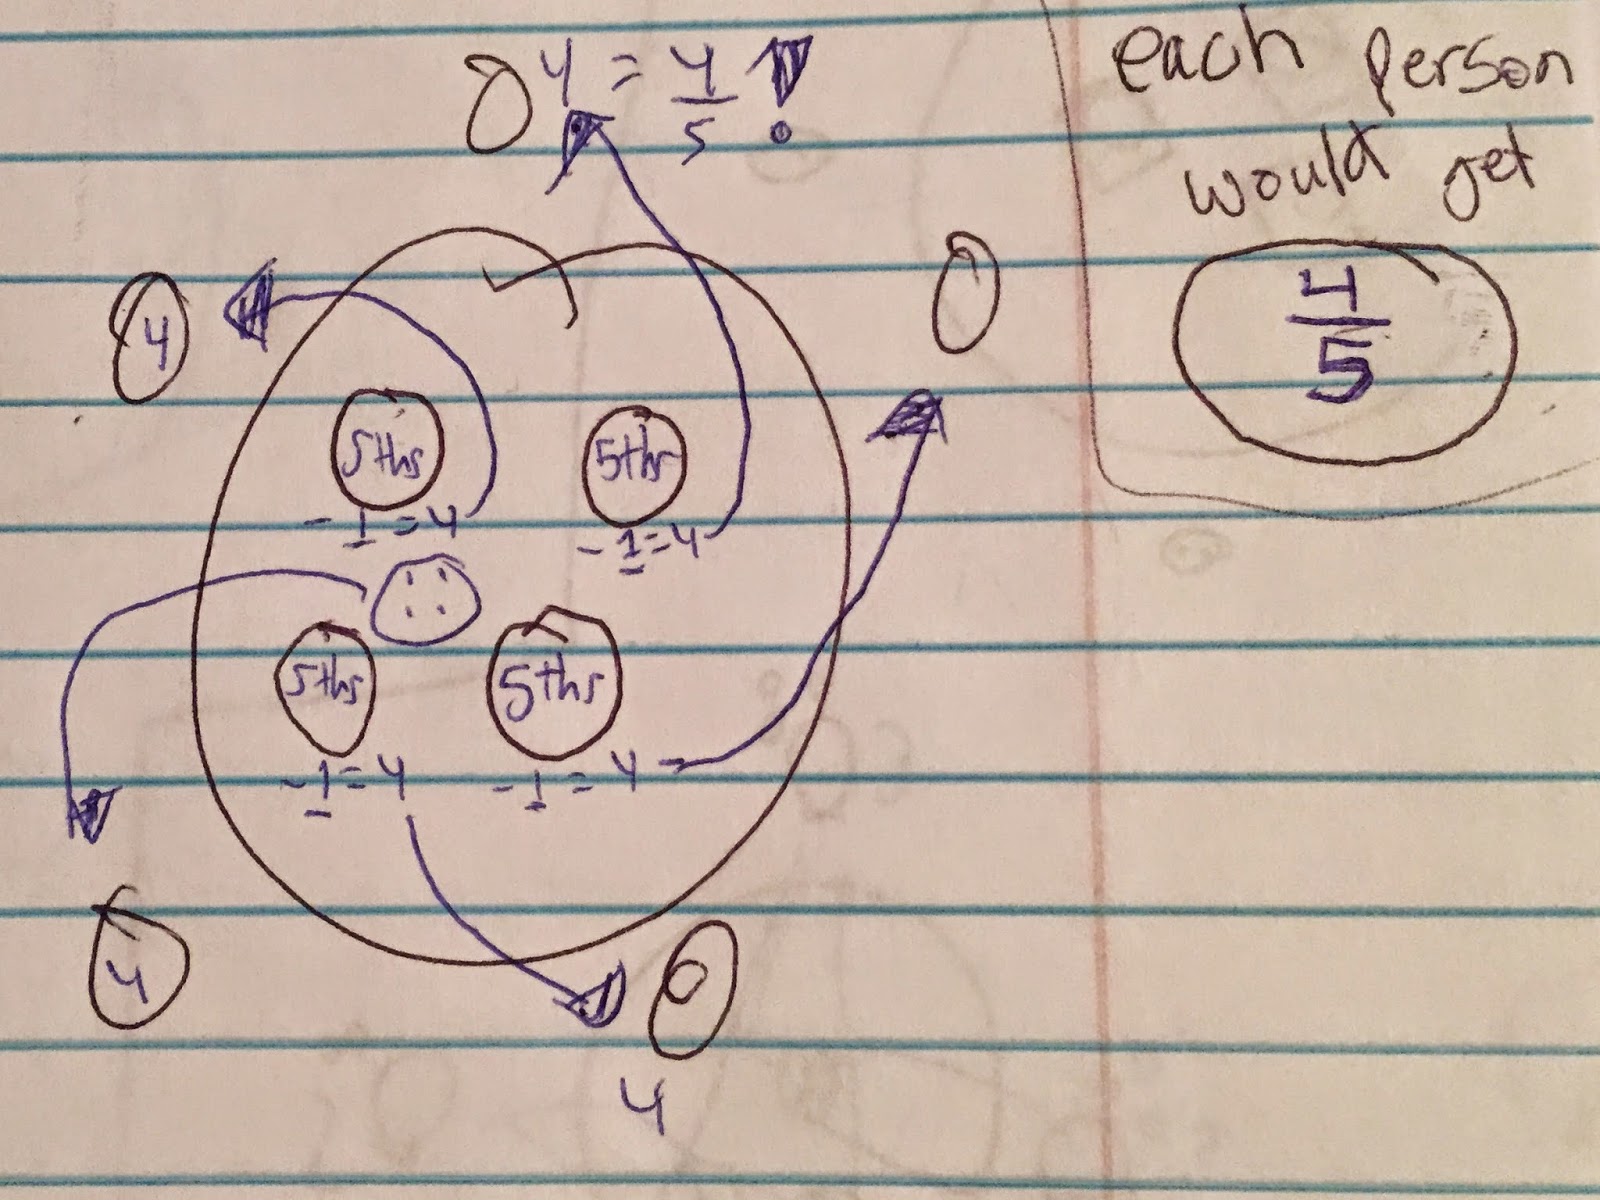 4 = 4/5 !
each person
would get
4/5
4
5ths
5ths
- 1 = 4
- 1 = 4
5ths
5ths
- 1 = 4
- 1 = 4
4
4